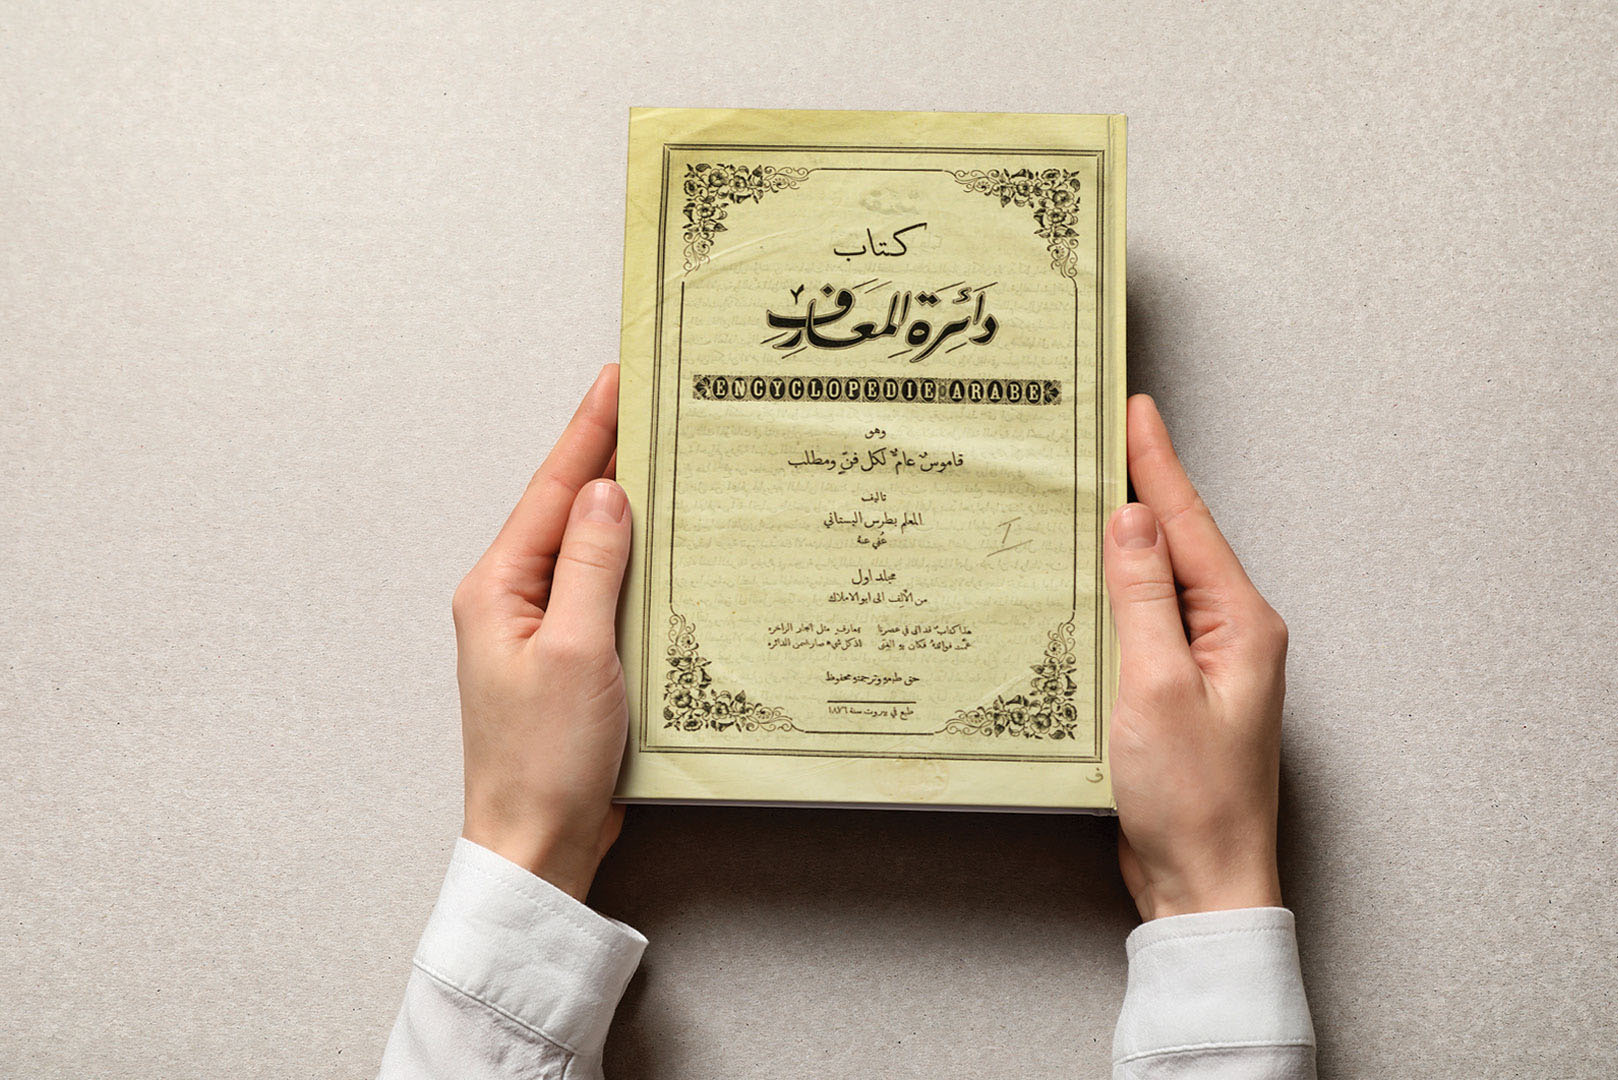 كتاب
دَائِرَة المَعَارِف
ENCYCLOPEDIE ARABE
وهو
قاموس عام لكل فنّ ومطلب
تاليف
المعلم بطرس البستاني
عُفي عنهُ
مجلد اول
من الألِف الى ابو الاملاك
هذا كتابٌ قد اتى في عصرنا بمعارفٍ مثل البحار الزاخره
عمّت فوائدهُ فكان بهِ الغنى اذ كل شيء صار ضمن الدائره
حق طبعهِ وترجمتهِ محفوظ
طبع في بيروت سنة ١٨٧٦
I
ف